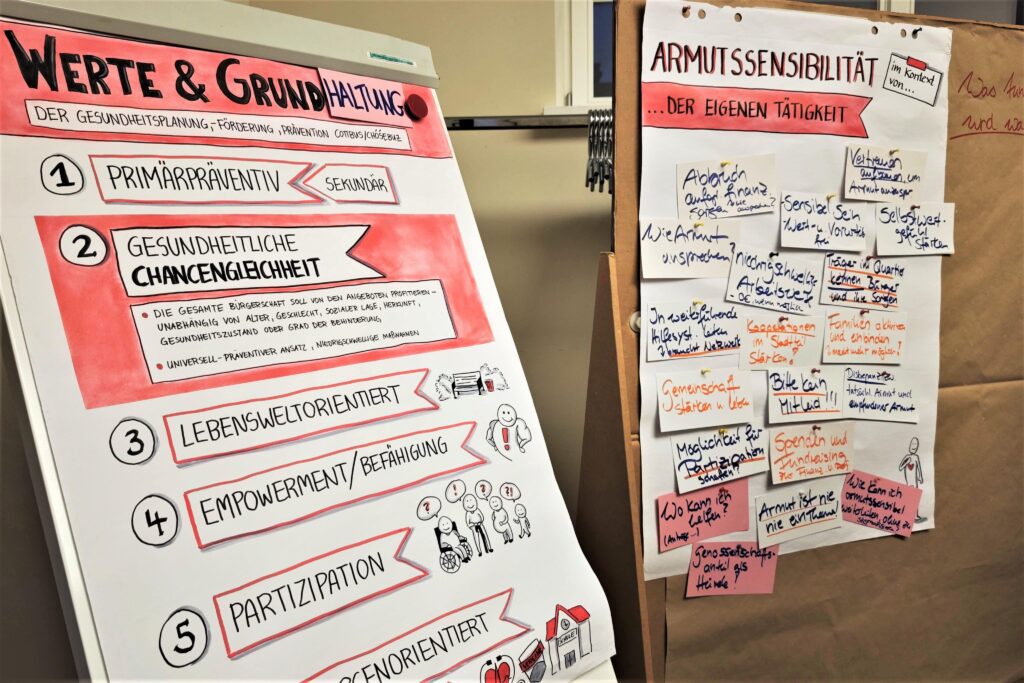 WERTE & GRUNDHALTUNG
DER GESUNDHEITSPLANUNG, -FÖRDERUNG, PRÄVENTION COTTBUS/CHÓŚEBUZ
1 PRIMÄRPRÄVENTIV SEKUNDÄR
2 GESUNDHEITLICHE
CHANCENGLEICHHEIT
• DIE GESAMTE BÜRGERSCHAFT SOLL VON DEN ANGEBOTEN PROFITIEREN -
UNABHÄNGIG VON ALTER, GESCHLECHT, SOZIALER LAGE, HERKUNFT,
GESUNDHEITSZUSTAND ODER GRAD DER BEHINDERUNG
• UNIVERSELL-PRÄVENTIVER ANSATZ, NIEDRIGSCHWELLIGE MAẞNAHMEN
3 LEBENSWELTORIENTIERT
4 EMPOWERMENT/BEFÄHIGUNG
! ? ! ?!
5 PARTIZIPATION
GENORIENTIERT
SCHULE
ARMUTSSENSIBILITÄT
im Kontext
von...
...DER EIGENEN TÄTIGKEIT
Was
wird
Vertrauen
aufbauen, um
Armut
Abbruch
aufgr. finanz.
Sorgen
-Sensibel Sein
Wert- u. Vorurteils
frei
Selbstwert-
gefühl
Stärken
Wie Armut
ansprechen?
Niedrigschwellige
Arbeitsweise
Träger im Quartier
kennen Bürger
und ihre Sorgen
In weiterführende
Hilfesyst.
braucht Netzwerk
Kooperationen
im Stadtteil
Stärken?
Familien aktivieren
und einbinden
Gemeinschaft
stärken u. leben
Bitte kein
Mitleid!!!
Diskrepanz zw.
tatsächl. Armut und
empfundener Armut
Möglichkeit für
Partizipation
schaffen?
Spenden und
Fundraising
für
Wo kann ich
helfen?
Armut ist nie
nie ein Thema!
Wie kann ich
armutssensibel
Genossenschafts-
anteil als
Hürde?